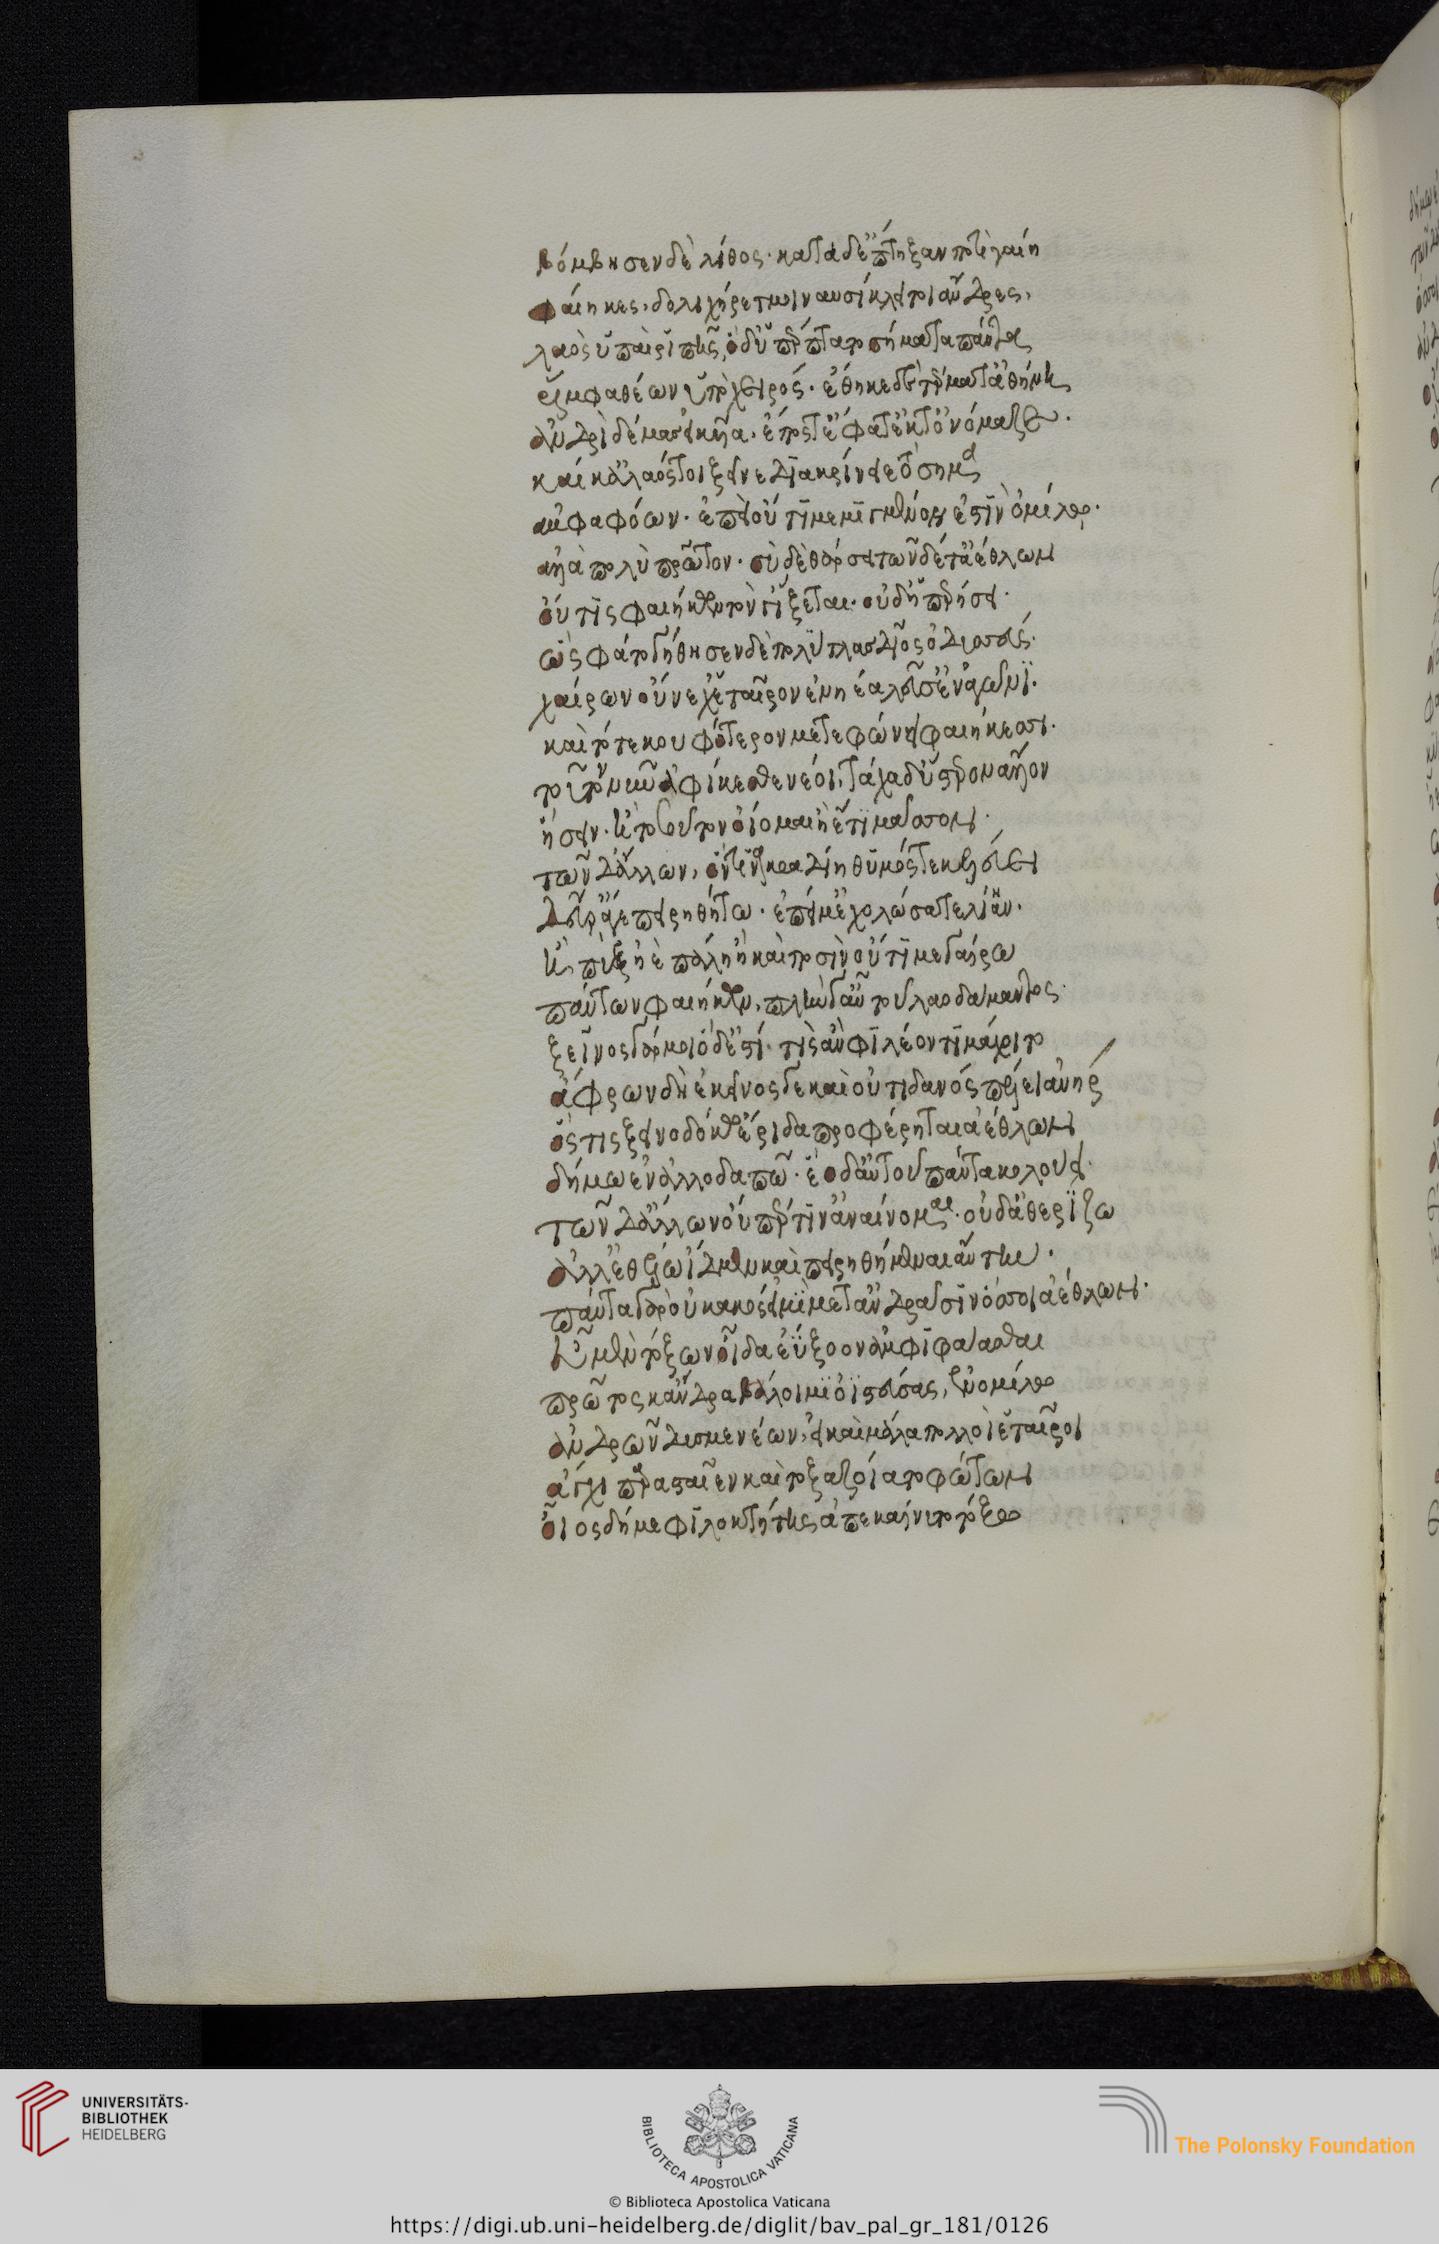 βόμβησεν δὲ λίθος· κατὰ δ' ἔπτηξαν ποτὶ γαίη
φαίηκες, δολιχήρετμοι ναυσίκλειτοι ἄνδρες,
λαὸς ὑπαὶ ῥιπῆς, ὁ δ' ὑπέρπτατο σήματα πάντα
ῥίμφα θέων ὑπὸ χειρός· ἔθηκε δὲ τέρματ' ἀθήνη
ἀνδρὶ δέμας εἰκυῖα, ἔπος τ' ἔφατ' ἔκ τ' ὀνόμαζε·
καί κ' ἀλαός τοι ξεῖνε διακρίνειε τὸ σῆμα
ἀμφαφόων· ἐπεὶ οὔτι μεμιγμένον ἐστὶν ὁμίλω·
ἀλλὰ πολὺ πρῶτον· σὺ δὲ θάρσει τῶνδέ γ' ἀέθλων
οὔτις φαιήκων τόν γ' ἵξεται· οὐδ' ὑπερήσει·
ὣς φάτο γήθησεν δὲ πολύτλας δῖος ὀδυσσεύς·
χαίρων οὕνεχ' ἑταῖρον ἐνηέα λεῦσσ' ἐν ἀγῶνι·
καὶ τότε κουφότερον μετεφώνει φαιήκεσσι·
τοῦτον νῦν ἀφίκεσθε νέοι, τάχα δ' ὕστερον ἄλλον
ἥσειν· ἢ τοσσοῦτον ὀίομαι ἢ ἔτι μάσσον·
τῶν δ' ἄλλων, ὅντινα κραδίη θυμός τε κελεύει
δεῦρ' ἄγε πειρηθήτω· ἐπεί μ' ἐχολώσατε λίην·
ἢ πὺξ ἠὲ πάλη ἢ καὶ ποσὶν οὔτι μεγαίρω
πάντων φαιήκων, πλήν γ' αὐτοῦ λαοδάμαντος·
ξεῖνος γάρ μοι ὅδ' ἐστί· τίς ἂν φιλέοντι μάχοιτο
ἄφρων δὴ ἐκεῖνός γε καὶ οὐτιδανὸς πέλει ἀνήρ
ὅστις ξεινοδόκω ἔριδα προφέρηται ἀέθλων
δήμω ἐν ἀλλοδαπῶ· ἕο δ' αὐτοῦ πάντα κολούει·
τῶν δ' ἄλλων οὔ πέρ τιν' ἀναίνομαι· οὐδ' ἀθερίζω
ἀλλ' ἐθέλω ἴδμεν καὶ πειρηθήμεναι ἄντην·
πάντα γὰρ οὐ κακός εἰμι μετ' ἀνδράσιν ὅσσοι ἄεθλοι·
εὖ μὲν τόξον οἶδα ἐύξοον ἀμφιφάασθαι
πρῶτός κ' ἄνδρα βάλοιμι ὀιστεύσας, ἐν ὁμίλω
ἀνδρῶν δυσμενέων, εἰ καὶ μάλα πολλοὶ ἑταῖροι
ἄγχι παρασταῖεν καὶ τοξαζοίατο φώτων
οἶος δή με φιλοκτήτης ἀπεκαίνυτο τόξω
UNIVERSITÄTS-
BIBLIOTHEK
HEIDELBERG
BIBLIOTECA APOSTOLICA VATICANA
The Polonsky Foundation
© Biblioteca Apostolica Vaticana
https://digi.ub.uni-heidelberg.de/diglit/bav_pal_gr_181/0126